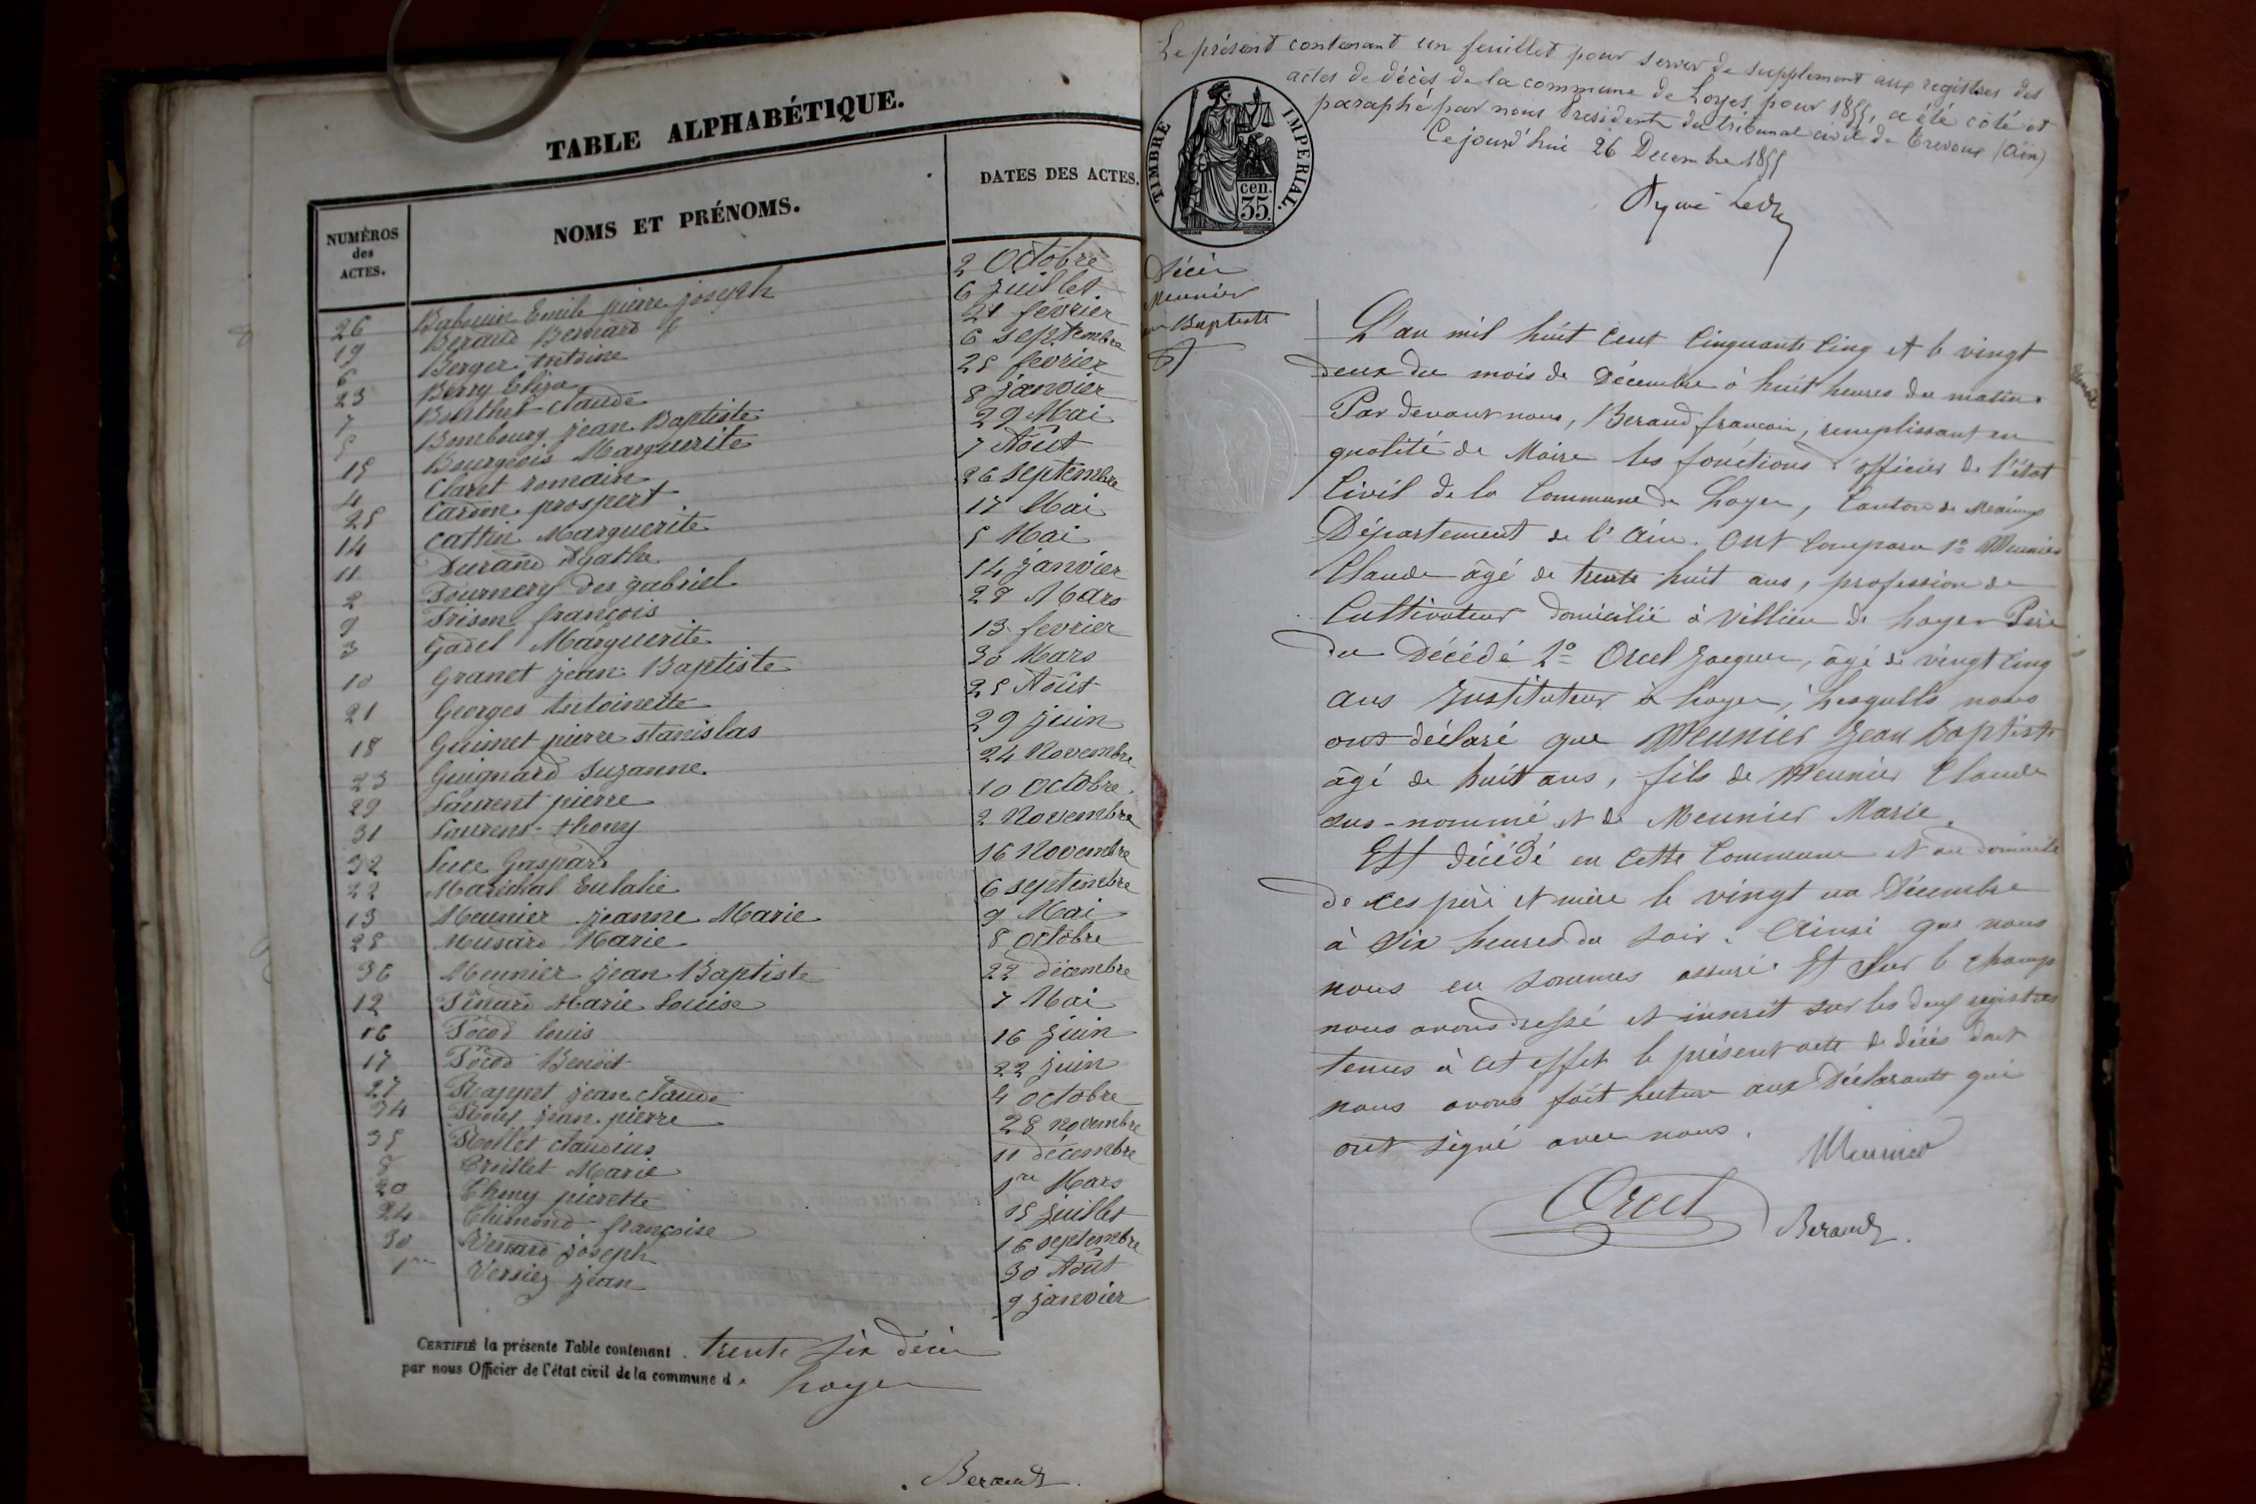 TABLE ALPHABÉTIQUE.
NUMÉROS
des
ACTES.
NOMS ET PRÉNOMS.
DATES DES ACTES.
26 Babouin Emile pierre joseph 2 Octobre
19 Beraud Bernard 6 juillet
6 Berger Antoine 21 février
23 Berry Eliza 6 septembre
7 Claude 25 fevrier
5 Bombourg jean Baptiste 8 janvier
15 Bourgeois Marguerite 29 Mai
4 Claret romain 7 Août
25 prospert 26 septembre
14 Cattin Marguerite 17 Mai
11 Durand Agathe 5 Mai
2 gabriel 14 janvier
9 Frison françois 28 Mars
3 Gadel Marguerite 13 fevrier
10 Granet jean Baptiste 30 Mars
21 Georges Antoinette 25 Août
18 Guimet pierre stanislas 29 juin
23 Guignard Suzanne 24 Novembre
29 Laurent pierre 10 Octobre
31 Laurent thony 2 Novembre
32 Luce Gaspard 16 Novembre
22 Maréchal Eulalie 6 septembre
13 Meunier jeanne Marie 9 Mai
28 Musard Marie 8 octobre
36 Meunier jean Baptiste 22 décembre
12 Pinard Marie Louise 7 Mai
16 Pocod louis 16 juin
17 Pocod Benoit 22 juin
27 Rappet jean claude 4 octobre
34 Roux jean pierre 28 novembre
35 Rollet claudius 11 décembre
8 Marie 1er Mars
20 Thony pierette 15 juillet
24 Thimond françoise 16 septembre
30 Venard joseph 30 Août
1er Versiez jean 9 janvier
CERTIFIÉ la présente Table contenant trente six décès
par nous Officier de l'état civil de la commune d Loyes
Beraud
Le présent contenant un feuillet pour servir de supplement aux registres des
actes de décès de la commune de Loyes pour 1855, a été côté et
paraphé par nous President du tribunal civil de Trevoux (Ain)
Ce jourd'hui 26 Decembre 1855
TIMBRE IMPERIAL.
cen.
35.
Décès
Meunier
Baptiste
L'an mil huit cent cinquante cinq et le vingt
deux du mois de Décembre à huit heures du matin
Par devant nous, Beraud francois, remplissant en
qualité de Maire les fonctions d'officier de l'état
Civil de la Commune de Loyes, Canton de Meximieux
Département de l'Ain. Ont comparu 1° Meunier
Claude âgé de trente huit ans, profession de
Cultivateur domicilié à Villieu de Loyes Père
du Décédé 2° Orcel Jacques, âgé de vingt cinq
ans Instituteur à Loyes, Lesquels nous
ont déclaré que Meunier Jean Baptiste
âgé de huit ans, fils de Meunier Claude
sus-nommé et de Meunier Marie.
Est décédé en cette Commune et au domicile
de ces père et mère le vingt un Décembre
à six heures du soir. Ainsi que nous
nous en sommes assuré. Et sur le champ
nous avons dressé et inscrit sur les deux registres
tenus à cet effet le présent acte de décès dont
nous avons fait lecture aux Déclarants qui
ont signé avec nous.
Meunier
Orcel
Beraud